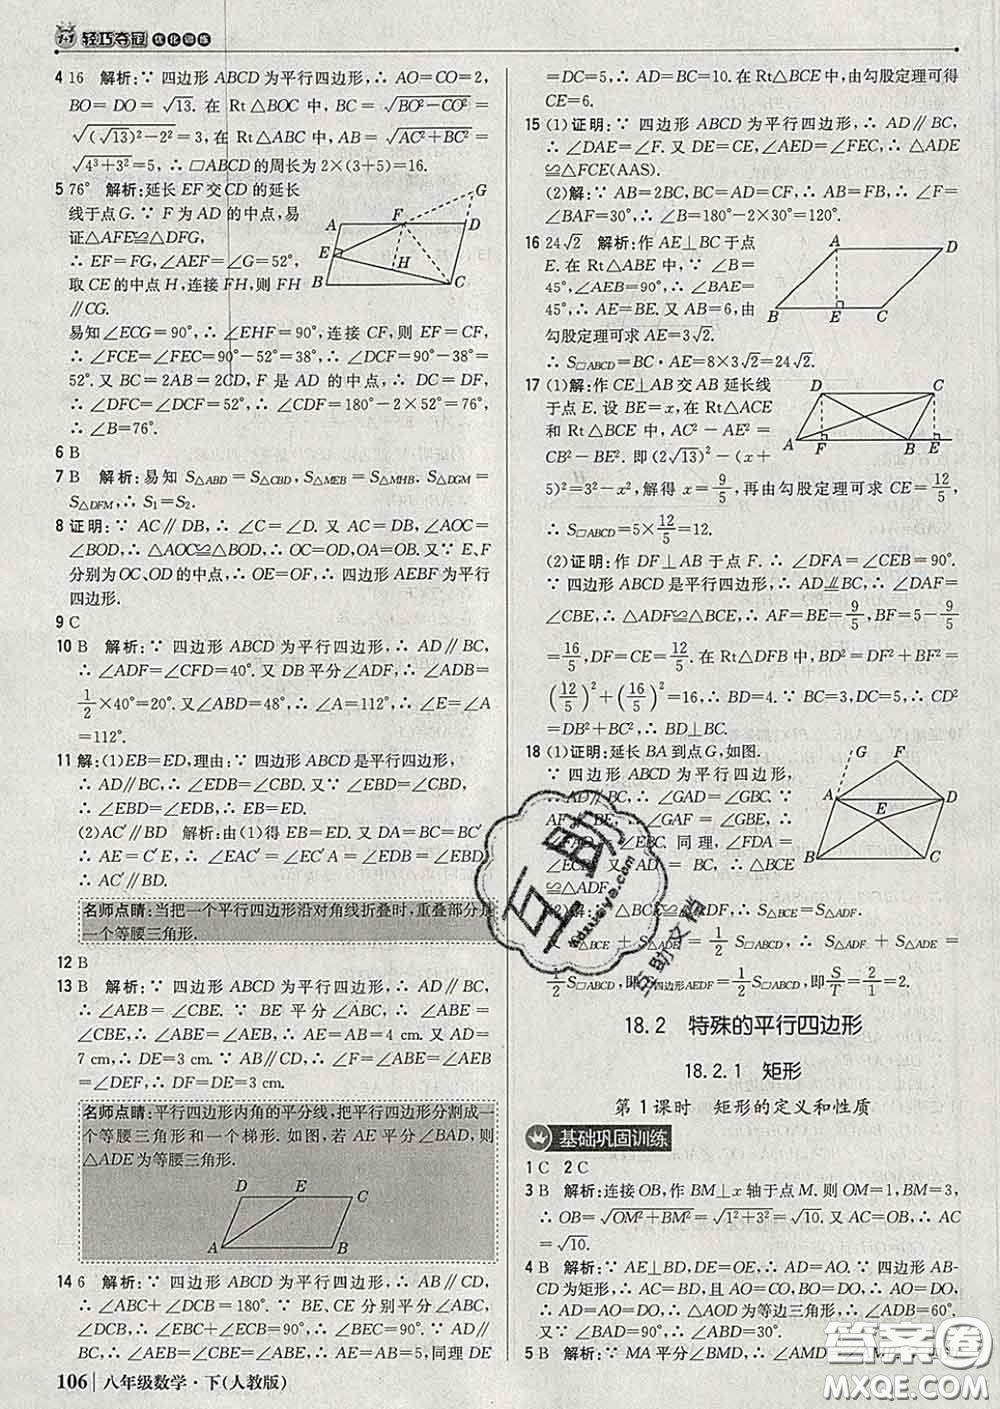 1+1 轻巧夺冠 优化训练
4 16 解析:∵ 四边形 ABCD 为平行四边形,∴ AO=CO=2,
BO=DO=√13. 在 Rt△BOC 中,BC=√(BO²−CO²)
=√((√13)²−2²)=3,在 Rt△ABC 中,AB=√(AC²+BC²)=
√(4³+3²)=5,∴ □ABCD的周长为 2×(3+5)=16.
5 76° 解析:延长 EF交CD 的延长
线于点G.∵ F为AD 的中点,易
证△AFE≌△DFG,
∴ EF=FG,∠AEF=∠G=52°,
取CE的中点H,连接FH,则 FH
∥CG.
易知∠ECG=90°,∴ ∠EHF=90°,连接 CF,则 EF=CF,
∴ ∠FCE=∠FEC=90°−52°=38°,∴ ∠DCF=90°−38°=
52°. 又∵ BC=2AB=2CD,F 是 AD 的中点,∴ DC=DF,
∴ ∠DFC=∠DCF=52°,∴ ∠CDF=180°−2×52°=76°,
∴ ∠B=76°.
6 B
7 B 解析:易知 S△ABD=S△CBD,S△MEB=S△MHB,S△DGM=
S△DFM,∴ S1=S2.
8 证明:∵ AC∥DB,∴ ∠C=∠D. 又 AC=DB,∠AOC=
∠BOD,∴ △AOC≌△BOD,∴ OC=OD,OA=OB.又∵ E、F
分别为OC、OD的中点,∴ OE=OF,∴ 四边形 AEBF为平行
四边形.
9 C
10 B 解析:∵ 四边形 ABCD 为平行四边形,∴ AD∥BC,
∴ ∠ADF=∠CFD=40°. 又 DB平分∠ADF,∴ ∠ADB=
1/2×40°=20°. 又∠ABD=48°,∴ ∠A=112°,∴ ∠E=∠A
=112°.
11 解:(1)EB=ED,理由:∵ 四边形ABCD是平行四边形,
∴ AD∥BC,∴ ∠EDB=∠CBD. 又∵ ∠EBD=∠CBD,
∴ ∠EBD=∠EDB,∴ EB=ED.
(2)AC′∥BD 解析:由(1)得 EB=ED. 又 DA=BC=BC′
∴ AE=C′E,∴ ∠EAC′=∠EC′A=∠EDB=∠EBD
∴ AC′∥BD.
名师点睛:当把一个平行四边形沿对角线折叠时,重叠部分是
一个等腰三角形.
12 B
13 B 解析:∵ 四边形 ABCD 为平行四边形,∴ AD∥BC,
∴ ∠AEB=∠CBE. ∵ BE 平分∠ABC,∴ ∠ABE=
∠CBE,∴ ∠ABE=∠AEB,∴ AE=AB=4 cm. 又 AD=
7 cm,∴ DE=3 cm. ∵ AB∥CD,∴ ∠F=∠ABE=∠AEB
=∠DEF,∴ DF=DE=3 cm.
名师点睛:平行四边形内角的平分线,把平行四边形分割成一
个等腰三角形和一个梯形. 如图,若 AE 平分∠BAD,则
△ADE为等腰三角形.
D E C
A B
14 6 解析:∵ 四边形 ABCD 为平行四边形,∴ AB∥CD,
∴ ∠ABC+∠DCB=180°. ∵ BE、CE 分别平分∠ABC、
∠DCB,∴ ∠EBC+∠ECB=90°,∴ ∠BEC=90°. ∵
AD∥BC,∴ ∠AEB=∠EBC=∠ABE,∴ AB=AE,同理DE
106 八年级数学·下(人教版)
=DC=5,∴ AD=BC=10. 在Rt△BCE中,由勾股定理可得
CE=6.
15 (1)证明:∵ 四边形 ABCD为平行四边形,∴ AD∥BC,
∴ ∠DAE=∠F. 又 DE=CE,∠AED=∠FEC,∴ △ADE
≌△FCE(AAS).
(2)解:∵ AB=2BC,BC=CF,∴ AB=FB,∴ ∠F=
∠BAF=30°,∴ ∠B=180°−2×30°=120°.
16 24√2 解析:作 AE⊥BC于点
E. 在Rt△ABE中,∵ ∠B=
45°,∠AEB=90°,∴ ∠BAE=
45°,∴ AE=BE. 又 AB=6,由
勾股定理可求 AE=3√2.
∴ S□ABCD=BC·AE=8×3√2=24√2.
17 (1)解:作 CE⊥AB 交 AB 延长线
于点 E. 设 BE=x,在Rt△ACE
和 Rt△BCE 中,AC²−AE²=
CB²−BE². 即(2√13)²−(x+
5)²=3²−x²,解得 x=9/5,再由勾股定理可求 CE=12/5,
∴ S□ABCD=5×12/5=12.
(2)证明:作 DF⊥AB 于点 F. ∴ ∠DFA=∠CEB=90°.
∵ 四边形 ABCD是平行四边形,∴ AD∥BC,∴ ∠DAF=
∠CBE,∴ △ADF≌△BCE,∴ AF=BE=9/5,BF=5−9/5
=16/5,DF=CE=12/5. 在 Rt△DFB 中,BD²=DF²+BF²=
(12/5)²+(16/5)²=16,∴ BD=4. ∵ BC=3,DC=5,∴ CD²
=DB²+BC²,∴ BD⊥BC.
18 (1)证明:延长 BA到点G,如图.
∵ 四边形ABCD为平行四边形,
∴ AD∥BC,∴ ∠GAD=∠GBC. ∵
AF∥BE,∴ ∠GAF=∠GBE,∴
∠FAD=∠EBC,同理,∠FDA=
∠ECB. 又 AD=BC,∴ △BCE
≌△ADF.
(2)解:∵ △BCE≌△ADF,∴ S△BCE=S△ADF.
∵ S△BCE+S△ADE=1/2 S□ABCD,∴ S△ADF+S△ADE=
1/2 S□ABCD,即S四边形AEDF=1/2 S□ABCD,即S/T=2/1=2.
18.2 特殊的平行四边形
18.2.1 矩形
第1课时 矩形的定义和性质
基础巩固训练
1 C 2 C
3 B 解析:连接OB,作 BM⊥x 轴于点 M. 则 OM=1,BM=3,
∴ OB=√(OM²+BM²)=√(1²+3²)=√10. 又∵ AC=OB,∴ AC=
√10.
4 B 解析:∵ AE⊥BD,DE=OE,∴ AD=AO. ∵ 四边形 AB-
CD为矩形,∴ AC=BD,AO=CO,BO=DO,∴ AO=DO,
∴ AD=AO=DO,∴ △AOD为等边三角形,∴ ∠ADB=60°.
又∵ ∠BAD=90°,∴ ∠ABD=30°.
5 B 解析:∵ MA 平分∠BMD,∴
互助
kidzuoye.com
互助文档
答案圈
MXQE.COM